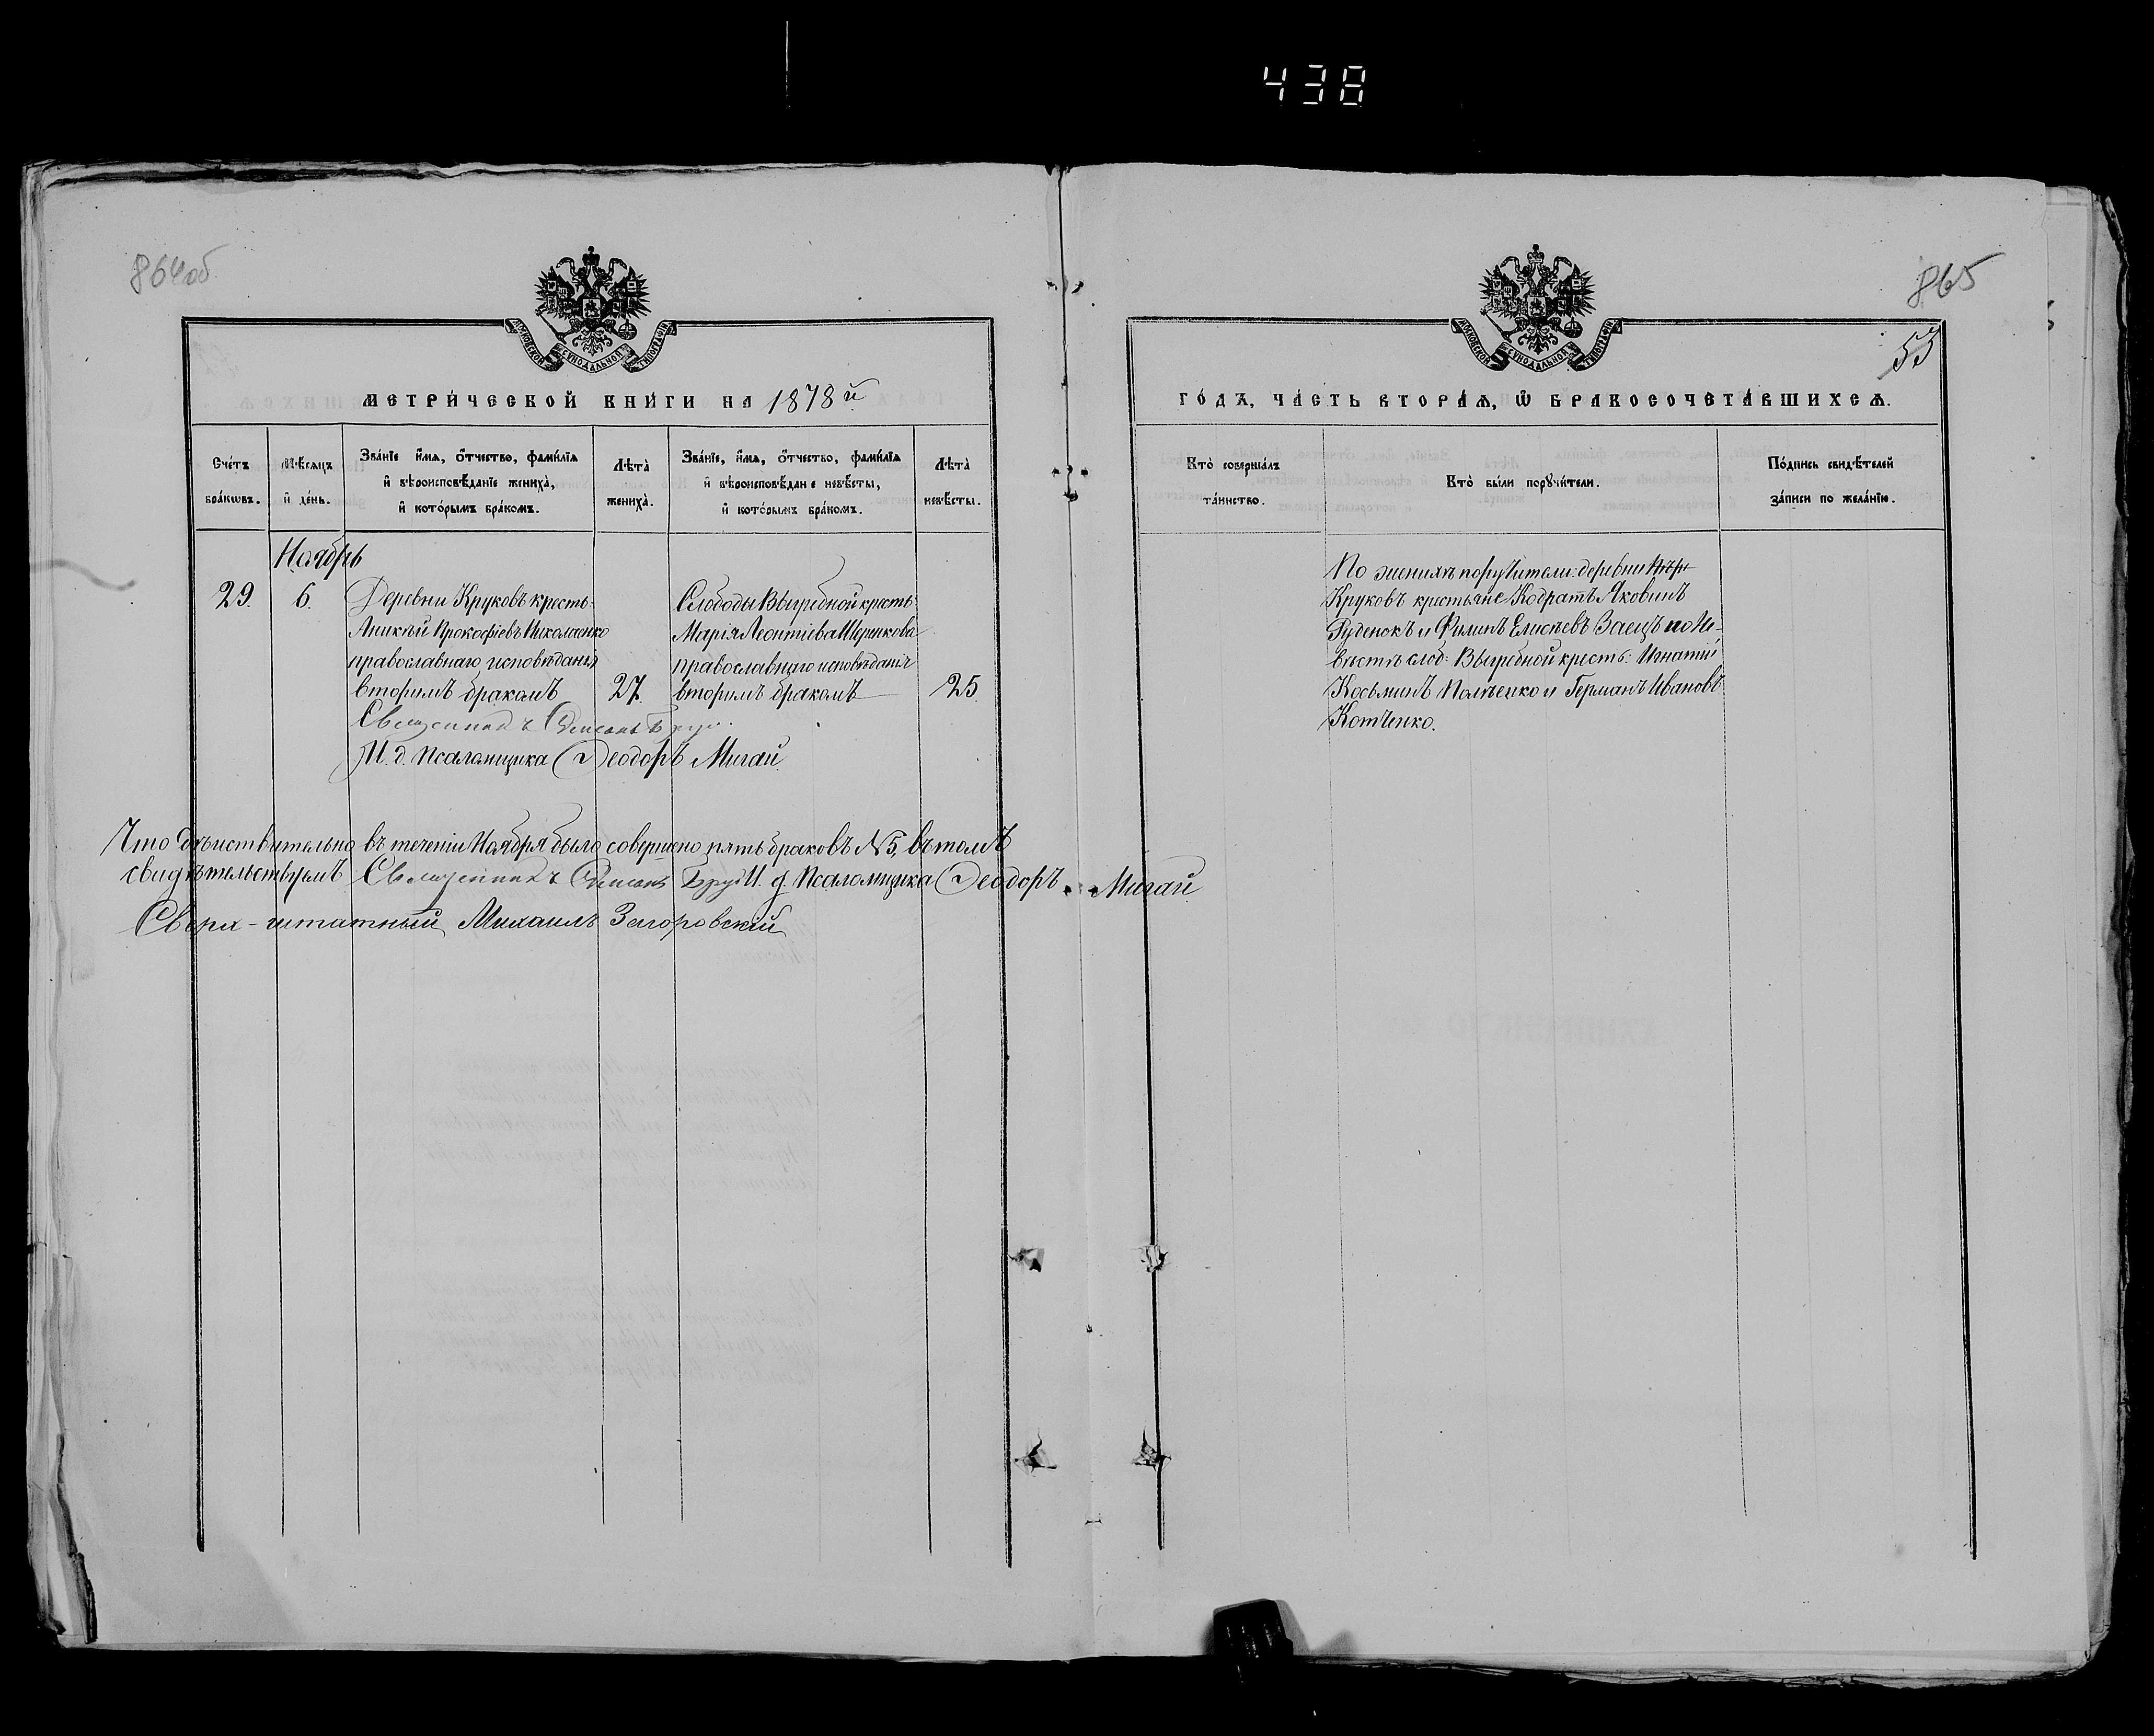 438
864об
865
53
МОСКОВСКОЙ СѴНОДАЛЬНОЙ ТИПОГРАФІИ
МОСКОВСКОЙ СѴНОДАЛЬНОЙ ТИПОГРАФІИ
МЕТРИ́ЧЕСКОЙ КНИ́ГИ НА 1878й
ГО́ДЪ, ЧА́СТЬ ВТОРА́Я, Ѡ БРАКОСОЧЕТА́ВШИХСѦ.
Сче́тъ бра́кѡвъ.
Мѣ́сяцъ и де́нь.
Зва́нїе и҆́мѧ, ѻ҆́тчество, фами́лїѧ
и҆ вѣроисповѣ́данїе жениха̀,
и҆ кото́рымъ бра́комъ.
Лѣта̀ жениха̀.
Зва́нїе, и҆́мѧ, ѻ҆́тчество, фами́лїѧ
и҆ вѣроисповѣ́дан е невѣ́сты,
и҆ кото́рымъ бра́комъ.
Лѣта̀ невѣ́сты.
Кто̀ соверша́лъ та́инство.
Кто̀ бы́ли порꙋчи́тели.
По́дпись свидѣ́телей за́писи по жела́нїю.
Ноябрь
29. 6.
Деревни Круковъ кресть:
Аникѣй Прокофіевъ Николаенко
православнаго исповѣданія
вторымъ бракомъ 27.
Слободы Выгребной кресть:
Марія Леонтіева
православнаго исповѣданія
вторымъ бракомъ 25
Священникъ
И. д. Псаломщика Ѳеодоръ Мигай.
По женихѣ поручители: деревни
Круковъ крестьяне Кодратъ Яковинъ
Руденокъ и Филипъ Елисѣевъ Заецъ по не-
вѣстѣ слоб: Выгребной кресть: Игнатій
Косьминъ и Германъ Ивановъ
Котченко.
Что дѣйствительно въ теченіи Ноября было совершено пять браковъ №5, въ томъ
свидѣтельствуемъ Священникъ И. д. Псаломщика Ѳеодоръ Мигай.
Сверх-штатный Михаилъ Загоровскій